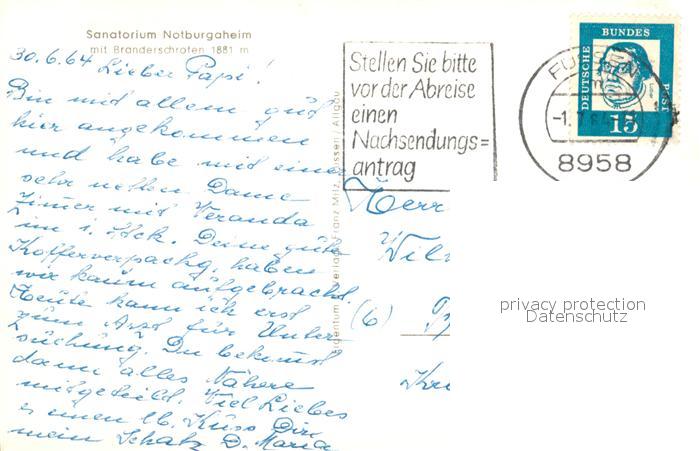 Sanatorium Notburgaheim
mit Branderschrofen 1881 m
30.6.64 Lieber Papi!
Bin mit allem gut
hier angekommen
und habe mit einer
sehr netten Dame
Zimer mit Veranda
im 1. Stck. Deine gute
Kofferverpackg. haben
wir kaum aufgebracht.
Heute kann ich erst
zum Arzt für Unter
suchung. Du bekomst
dann alles Nähere
mitgeteilt. Viel Liebes
u einen lb. Kuss Dir
mein Schatz D. Maria
Verlag Franz Milz, Füssen / Allgäu
Stellen Sie bitte
vor der Abreise
einen
Nachsendungs=
antrag
8958
DEUTSCHE BUNDES POST
15
Herr
(6)
privacy protection
Datenschutz